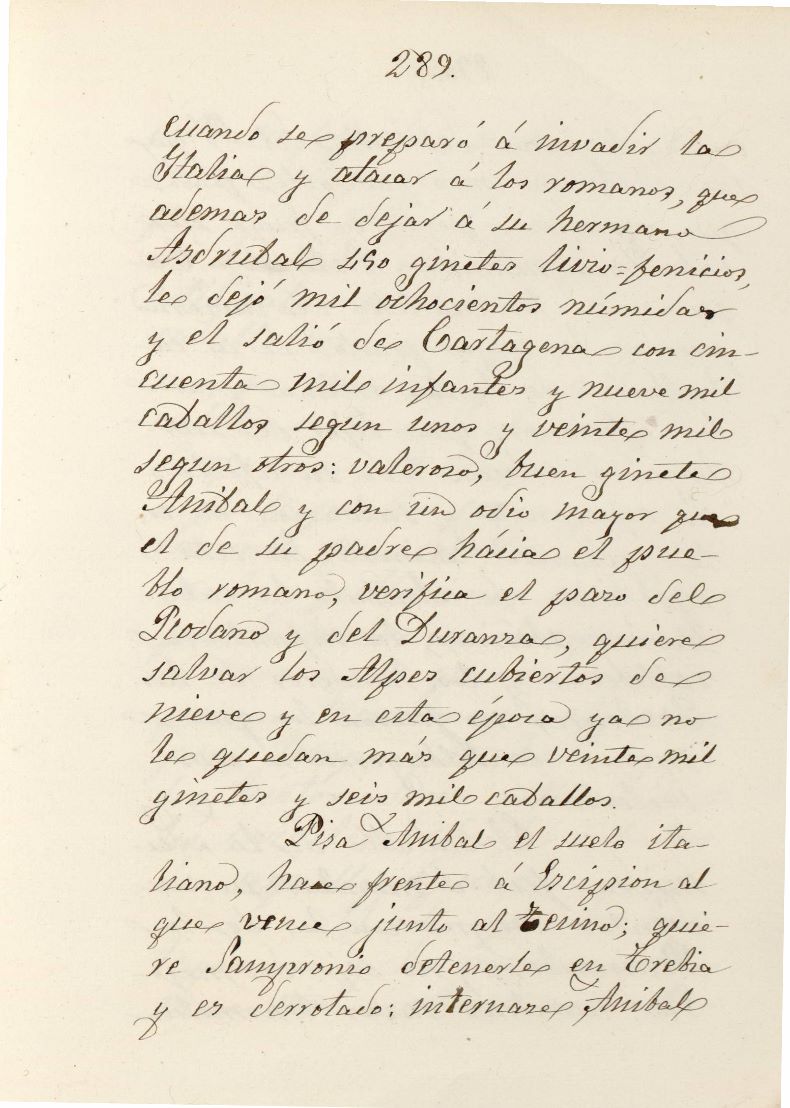 289.
cuando se preparó á invadir la
Italia y atacar á los romanos, que
ademas de dejar á su hermano
Asdrubal 450 ginetes livio=fenicios,
le dejó mil ochocientos númidas
y el salió de Cartagena con cin-
cuenta mil infantes y nueve mil
caballos segun unos y veinte mil
segun otros: valeroso, buen ginete
Anibal y con un odio mayor que
el de su padre hácia el pue-
blo romano, verifica el paso del
Rodano y del Duranza, quiere
salvar los Alpes cubiertos de
nieve y en esta época ya no
le quedan más que veinte mil
ginetes y seis mil caballos.
Pisa Anibal el suelo ita-
liano, hace frente á Escipion al
que vence junto al Tesino; quie-
re Sampronio detenerle en Trebia
y es derrotado: internase Anibal